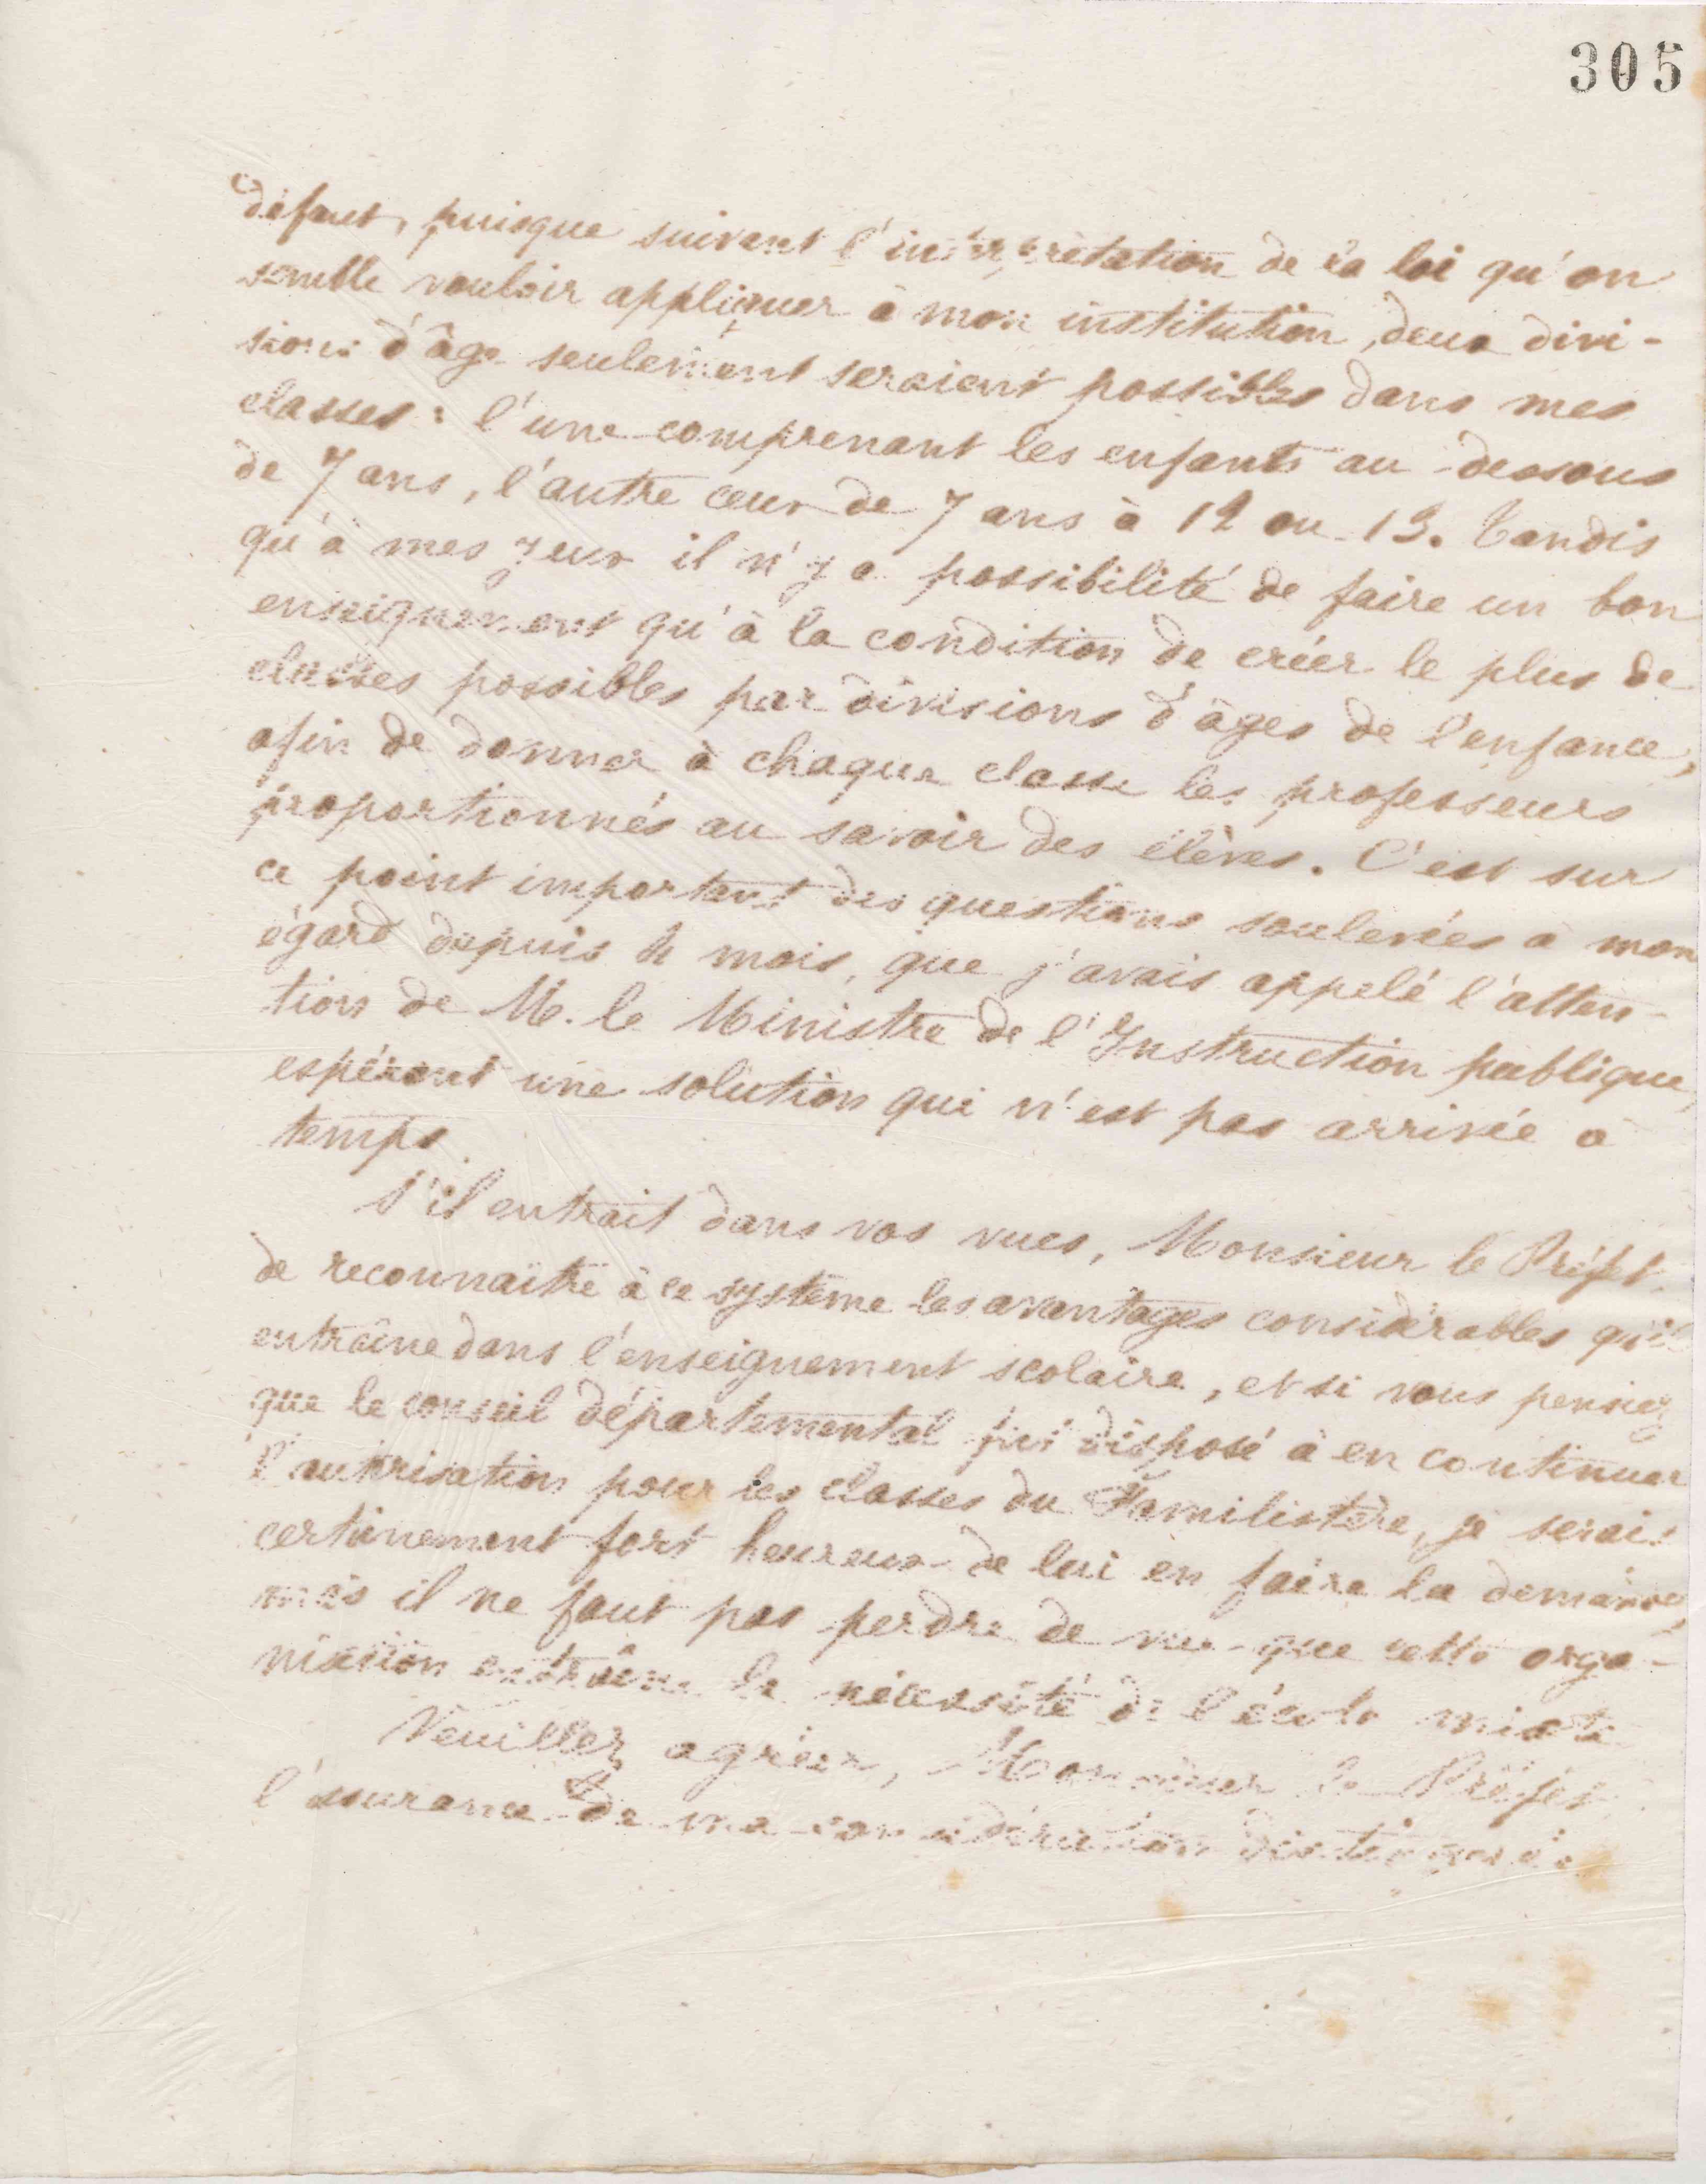 305
défaut, puisque suivant l'interprétation de la loi qu'on
semble vouloir appliquer à mon institution, deux divi-
sions d'âge seulement seraient possibles dans mes
classes : l'une comprenant les enfants au-dessous
de 7 ans, l'autre ceux de 7 ans à 12 ou 13. Tandis
qu'à mes yeux il n'y a possibilité de faire un bon
enseignement qu'à la condition de créer le plus de
classes possibles par divisions d'âges de l'enfance,
afin de donner à chaque classe les professeurs
proportionnés au savoir des élèves. C'est sur
ce point important des questions soulevées à mon
égard depuis 4 mois, que j'avais appelé l'atten-
tion de M. le Ministre de l'Instruction publique,
espérant une solution qui n'est pas arrivée à
temps.
S'il entrait dans vos vues, Monsieur le Préfet,
de reconnaître à ce système les avantages considérables qu'il
entraîne dans l'enseignement scolaire, et si vous pensiez
que le conseil départemental fut disposé à en continuer
l'autorisation pour les classes du Familistère, je serais
certainement fort heureux de lui en faire la demande,
mais il ne faut pas perdre de vue que cette orga-
nisation entraîne la nécessité de l'école mixte
Veuillez agréer, Monsieur le Préfet,
l'assurance de ma considération distinguée